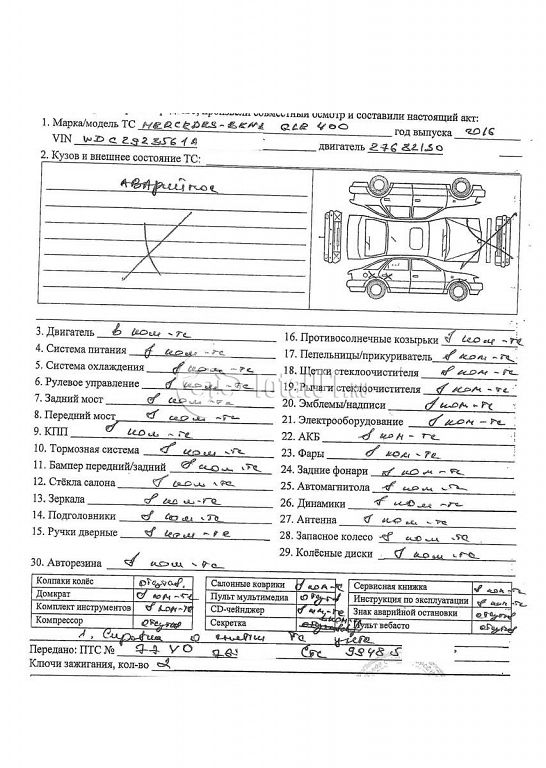 произвели совместный осмотр и составили настоящий акт:
1. Марка/модель ТС MERCEDES-BENZ GLE 400 год выпуска 2016
VIN WDC2923561A двигатель 27682130
2. Кузов и внешнее состояние ТС:
Аварийное
3. Двигатель в ком-те
4. Система питания в ком-те
5. Система охлаждения в ком-те
6. Рулевое управление в ком-те
7. Задний мост в ком-те
8. Передний мост в ком-те
9. КПП в ком-те
10. Тормозная система в ком-те
11. Бампер передний/задний в ком-те
12. Стёкла салона в ком-те
13. Зеркала в ком-те
14. Подголовники в ком-те
15. Ручки дверные в ком-те
16. Противосолнечные козырьки в ком-те
17. Пепельницы/прикуриватель в ком-те
18. Щетки стеклоочистителя в ком-те
19. Рычаги стеклоочистителя в ком-те
20. Эмблемы/надписи в ком-те
21. Электрооборудование в ком-те
22. АКБ в ком-те
23. Фары в ком-те
24. Задние фонари в ком-те
25. Автомагнитола в ком-те
26. Динамики в ком-те
27. Антенна в ком-те
28. Запасное колесо в ком-те
29. Колёсные диски в ком-те
30. Авторезина в ком-те
Колпаки колёс отсутв.
Домкрат в ком-те
Комплект инструментов в ком-те
Компрессор отсутв
Салонные коврики в ком-те
Пульт мультимедиа отсутв
CD-чейнджер в ком-те
Секретка в ком-те
Сервисная книжка в ком-те
Инструкция по эксплуатации в ком-те
Знак аварийной остановки отсутв
Пульт вебасто отсутв
1. Справка о снятии ТС учета
Передано: ПТС № 77 УО СТС 99485
Ключи зажигания, кол-во 2